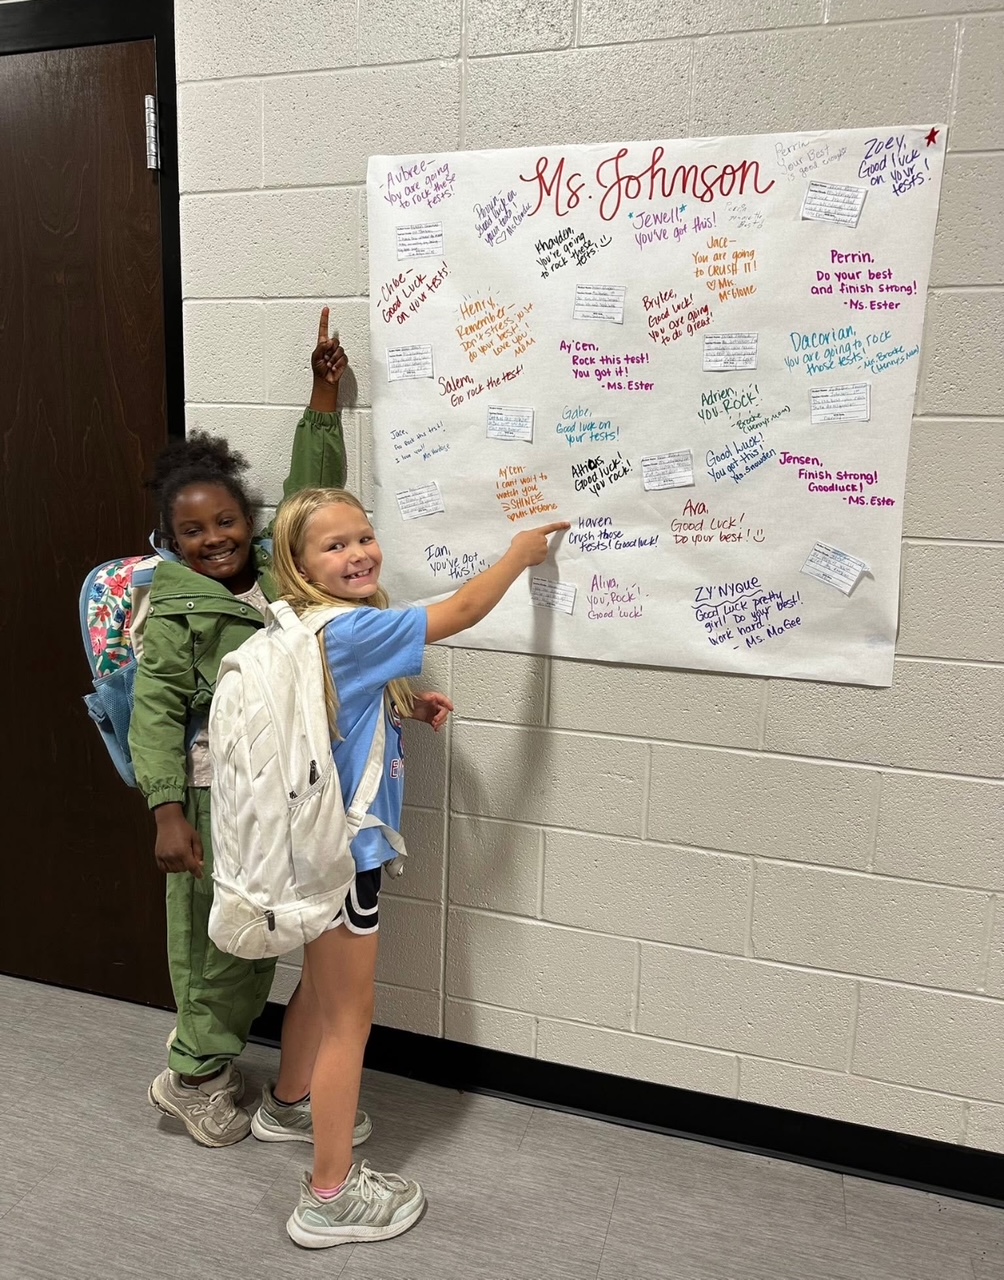 Ms. Johnson
Aubree-
You are going
to rock these
tests!
Good luck on
your tests!
Khayden,
You're going
to rock these
tests!!
Jewell,
You've got this!
Perrin
Your Best
good
Zoey,
Good luck
on your
tests!
Jace-
You are going
to CRUSH IT!
Mrs.
McGlone
Perrin,
Do your best
and finish strong!
- Ms. Ester
-Chloe-
Good Luck
on your tests!
Henry,
Remember-
Don't stress, just
do your best!
love you!
MOM
Brylee,
Good luck!
You are going
to do great!
Ay'Cen,
Rock this test!
You got it!
- Ms. Ester
Dacorian,
You are going to rock
those tests!
- Ms. Brooke
(Henry's Mom)
Salem,
Go rock the test!
Adrien,
YOU Rock!
- Brooke
(Henry's Mom)
Gabe,
Good luck on
your tests!
Jace,
I love you!!
Good luck!
You got this!
Ms. Snowden
Jensen,
Finish Strong!
Goodluck!
- MS. Ester
Good luck!
You rock!
Ay'Cen-
I can't wait to
watch you
SHINE
Mrs. McGlone
Haven
Crush those
tests! Good luck!
Ava,
Good Luck!
Do your best!
Ian,
You've got
this!
You, Rock!
Good luck!
ZY'NYQUE
Good Luck pretty
girl! Do your best!
Work hard.
- Ms. McGee